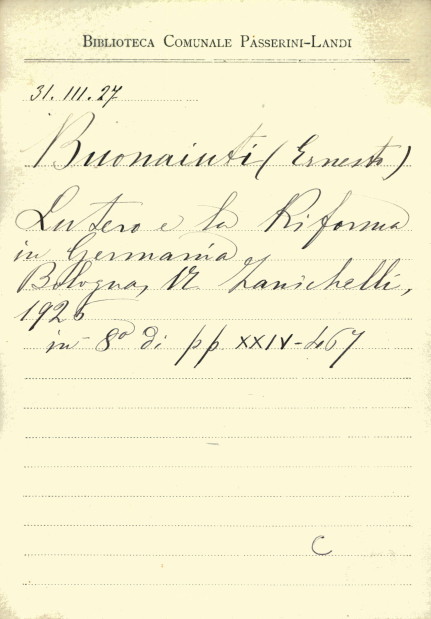 BIBLIOTECA COMUNALE PASSERINI-LANDI
31.III.27
Buonaiuti (Ernesto)
Lutero e la Riforma
in Germania
Bologna, N. Zanichelli,
1926
in 8º di pp. XXIV-467
C